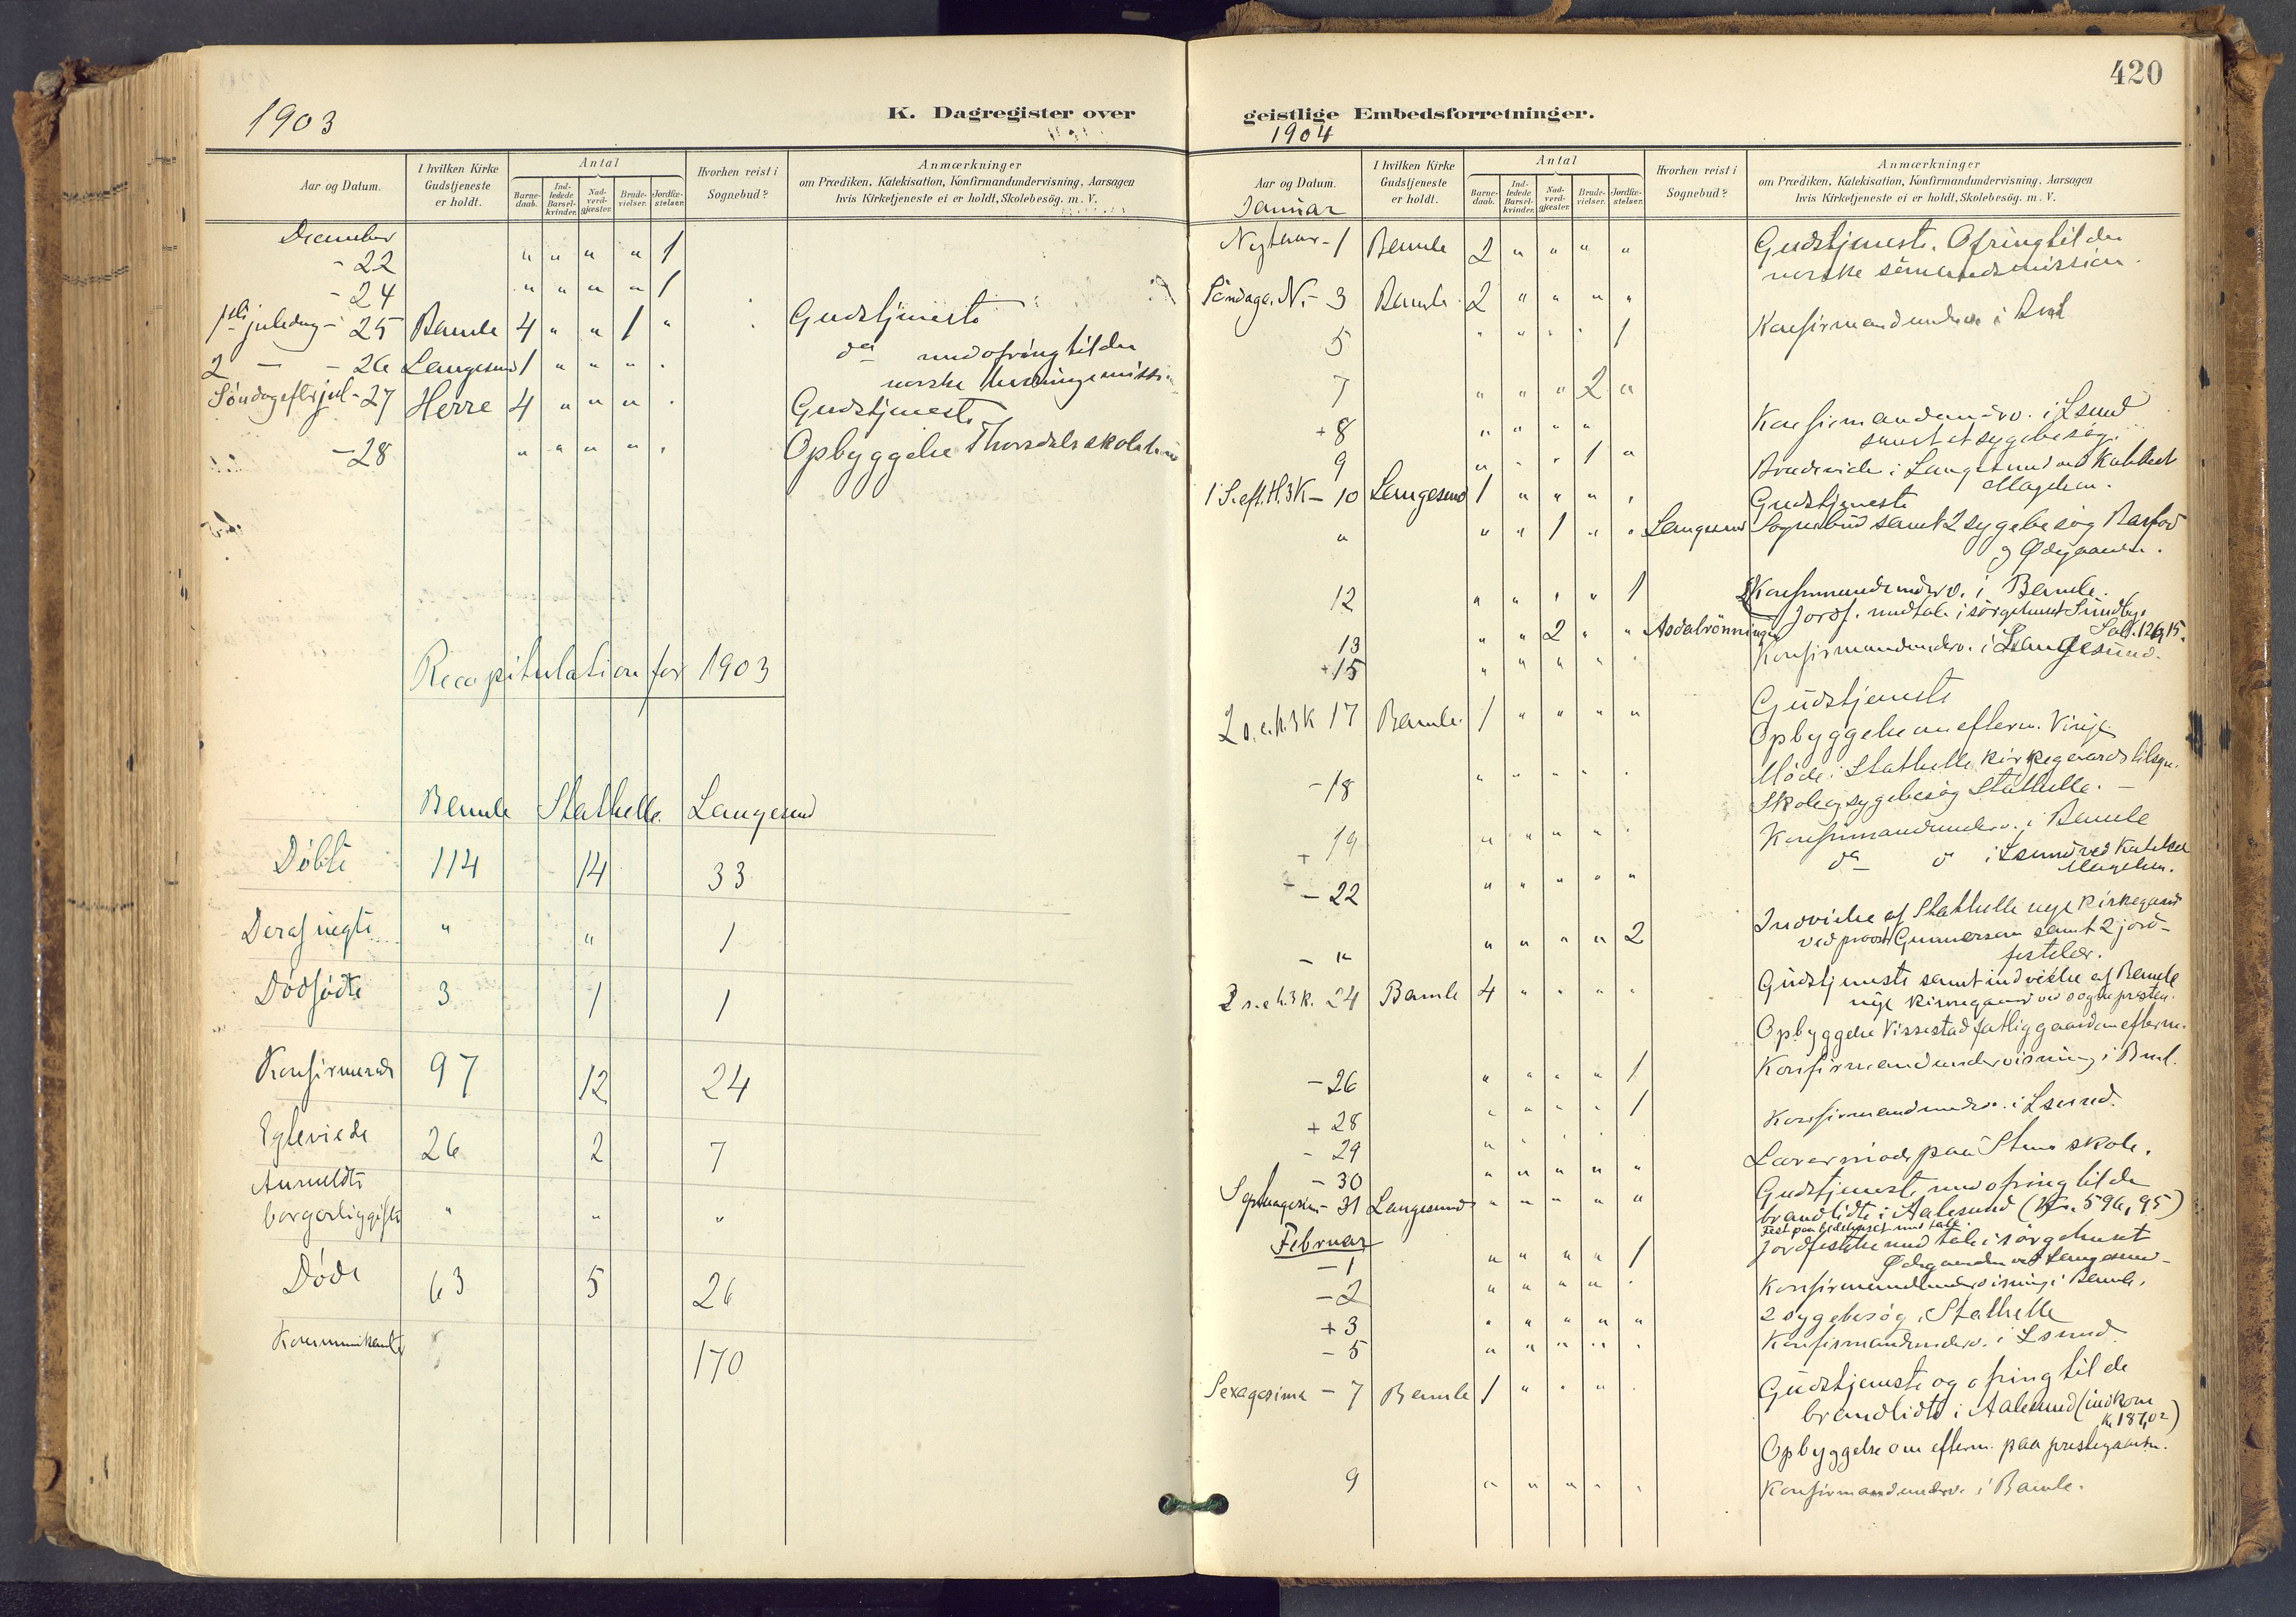 1903
K. Dagregister over
Aar og Datum.
I hvilken Kirke Gudstjeneste er holdt.
Antal
Barne-daab.
Ind-ledede Barsel-kvinder.
Nad-verd-gjæster.
Brude-vielser.
Jordfæ-stelser.
Hvorhen reist i Sognebud?
Anmærkninger
om Prædiken, Katekisation, Konfirmandundervisning, Aarsagen
hvis Kirketjeneste ei er holdt, Skolebesøg. m. V.
December
- 22 " " " " 1
- 24 " " " " 1
1ste juledag - 25 Bamle 4 " " 1 " Gudstjeneste
2 - - 26 Langesund 1 " " " " do med ofring til den
norske
Søndag efter jul - 27 Herre 4 " " " " Gudstjeneste
- 28 " " " " " Opbyggelse Thorsdals
Recapitulation for 1903
Bamle Stathelle Langesund
Døbte 114 14 33
Deraf uegte " " 1
Dødfødte 3 1 1
Konfirmerede 97 12 24
Egteviede 26 2 7
Anmeldte
borgerlig gifte " " "
Døde 63 5 26
Kommunikanter 170
420
geistlige Embedsforretninger.
1904
Aar og Datum.
I hvilken Kirke Gudstjeneste er holdt.
Antal
Barne-daab.
Ind-ledede Barsel-kvinder.
Nad-verd-gjæster.
Brude-vielser.
Jordfæ-stelser.
Hvorhen reist i Sognebud?
Anmærkninger
om Prædiken, Katekisation, Konfirmandundervisning, Aarsagen
hvis Kirketjeneste ei er holdt, Skolebesøg. m. V.
Januar
Nytaar - 1 Bamle 2 " " " " Gudstjeneste. Ofring til den
norske sømandsmission.
Søndag e. N. - 3 Bamle 2 " " " "
5 " " " " 1 Konfirmandunderv. i Bml
7 " " " 2 "
+ 8 " " " " Konfirmandunderv. i Lsund
samt et sygebesøg.
9 " " " 1 " Brudevielse i Langesund ved Katekect
Magelsen.
1 S. eft. H. 3 K - 10 Langesund 1 " " " " Gudstjeneste
" " " 1 " " Langesund Sognebud samt 2 sygebesøg Barfod
og Ødegaarden.
12 " " " " 1 Konfirmandunderv. i Bamle.
Jordf. med tale i sørgehuset Sundby.
13 " " 2 " " Asdalrønningen
+ 15 " " " " " Konfirmandunderv. i Langesund.
2 s. e. h. 3 K 17 Bamle 1 " " " " Gudstjeneste
Opbyggelse om efterm.
- 18 " " " " " Møde i Stathelle kirkegaardstilsyn.
Skole og sygebesøg Stathelle. -
+ 19 " " " " " Konfirmandunderv. i Bamle
- 22 " " " " " do o i Lsund ved Katekect
Magelsen.
- " " " " " 2 Indvielse af Stathelle nye kirkegaard
ved provst Gunnersen samt 2 jord-
festelser.
3 s. e. h. 3 k. 24 Bamle 4 " " " " Gudstjeneste samt indvielse af Bamle
nye kirkegaard ved sognepresten.
Opbyggelse Vissestad fattiggaard om efterm.
- 26 " " " " 1 Konfirmandundervisning i Bml.
+ 28 " " " " 1 Konfirmandunderv. i Lsund.
- 29 " " " "
- 30 " " " " " Lærermøde paa skole.
Septuagesima - 31 Langesund " " " " " Gudstjeneste med ofring til de
brandlidte i Aalesund (Kr. 596,95)
Fest paa bedehuset med tale.
Februar
- 1 " " " " 1 Jordfestelse med tale i sørgehuset
Ødegaarden ved Langesund -
- 2 " " " " " Konfirmandundervisning i Bamle.
+ 3 " " " " " 2 sygebesøg i Stathelle
- 5 " " " " " Konfirmandunderv. i Lsund.
Sexagesima - 7 Bamle 1 " " " " Gudstjeneste og ofring til de
brandlidte i Aalesund (indkom
kr 187,02)
Opbyggelse om efterm. paa prestegaarden.
9 " " " " " Konfirmandunderv. i Bamle.